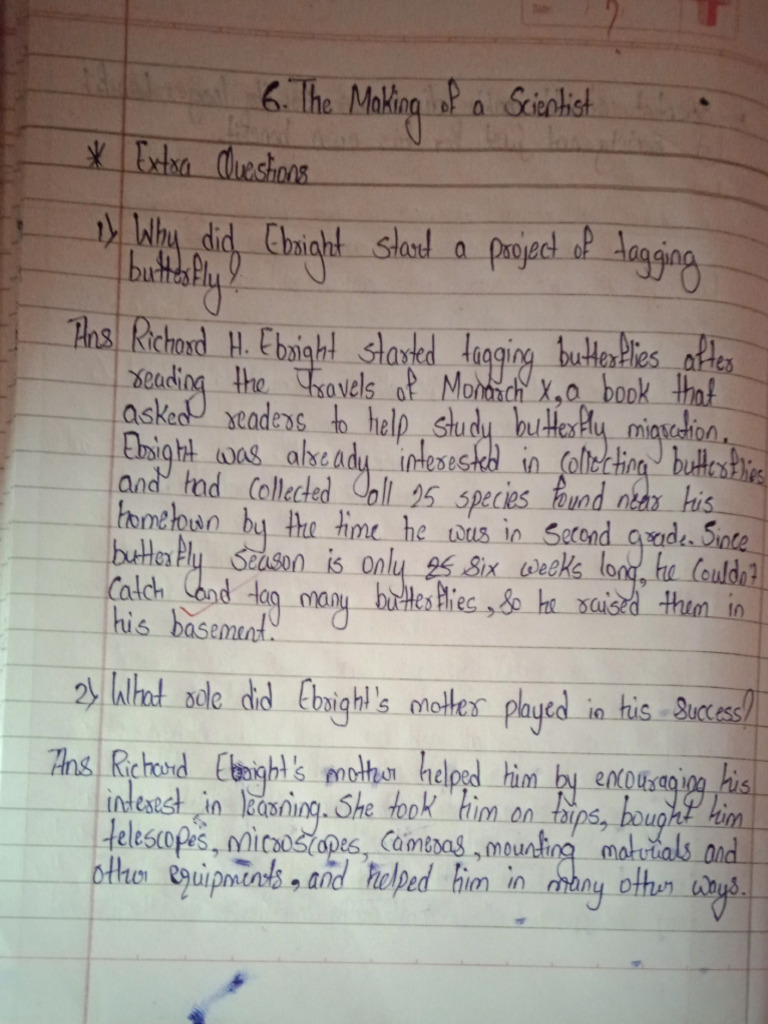 6. The Making of a Scientist
* Extra Questions
1) Why did Ebright start a project of tagging
butterfly?
Ans Richard H. Ebright started tagging butterflies after
reading the Travels of Monarch X, a book that
asked readers to help study butterfly migration.
Ebright was already interested in collecting butterflies
and had collected all 25 species found near his
hometown by the time he was in second grade. Since
butterfly season is only six weeks long, he couldn't
catch and tag many butterflies, so he raised them in
his basement.
2) What role did Ebright's mother played in his success?
Ans Richard Ebright's mother helped him by encouraging his
interest in learning. She took him on trips, bought him
telescopes, microscopes, cameras, mounting materials and
other equipments, and helped him in many other ways.